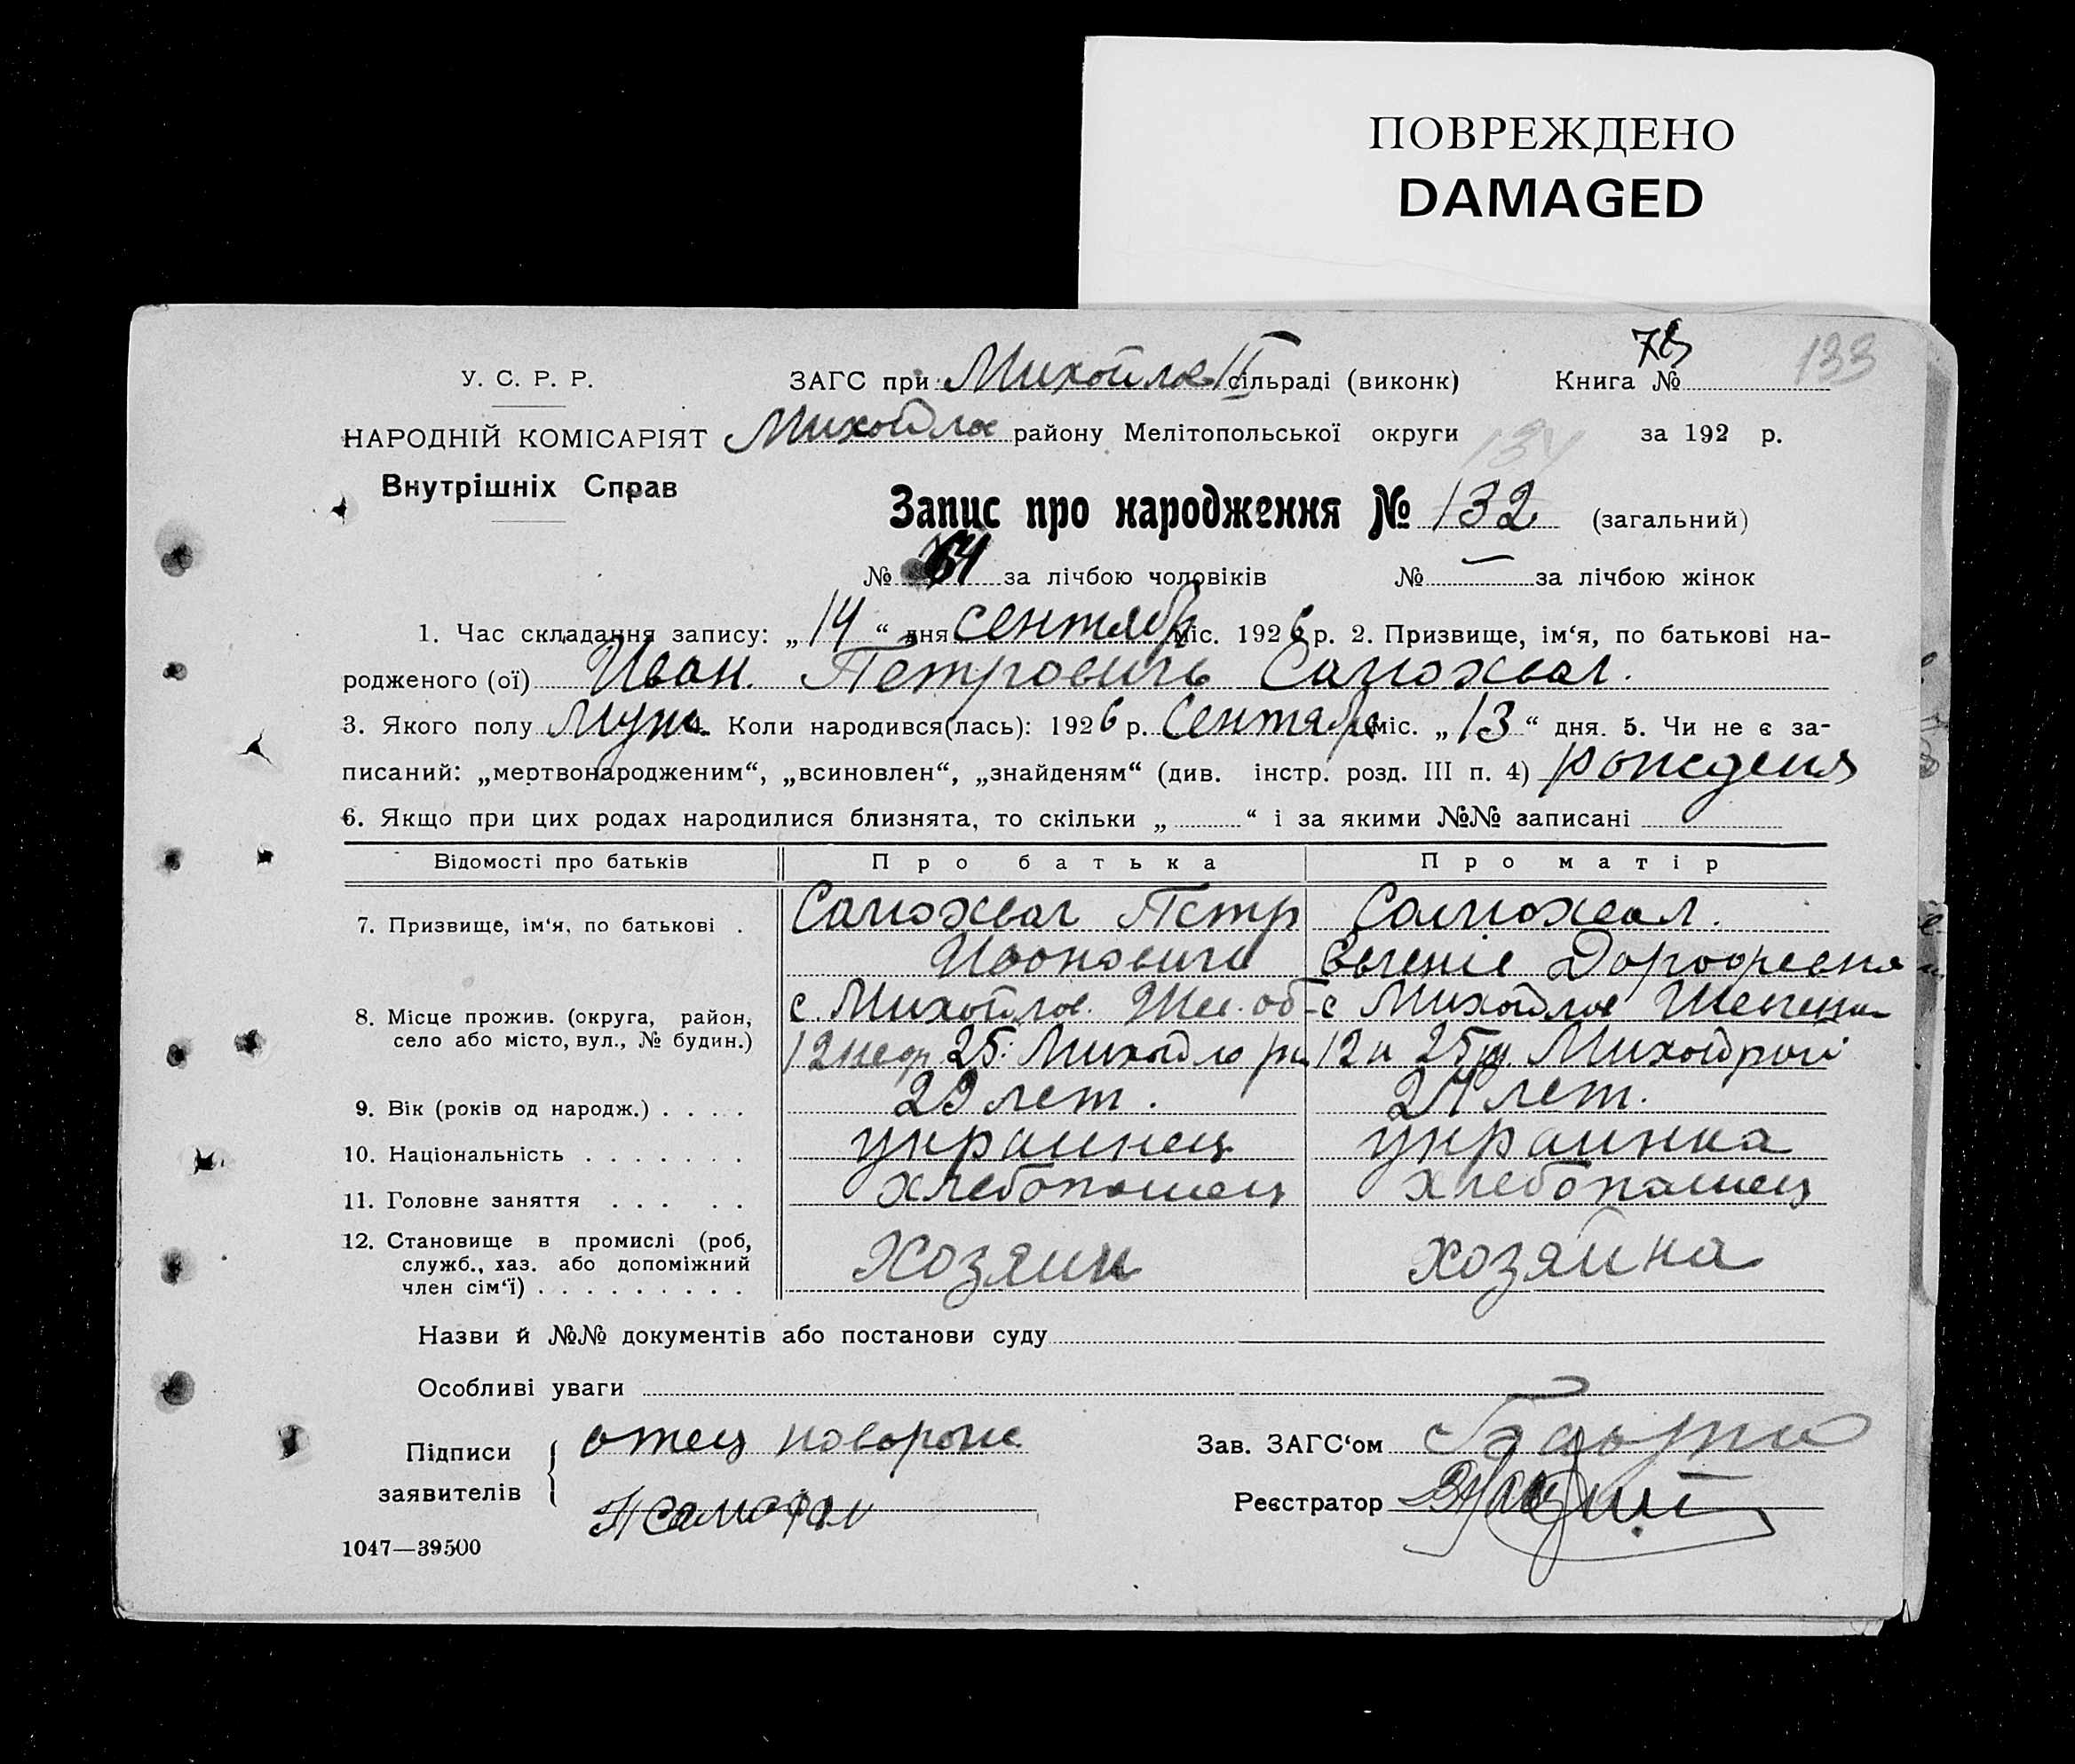 ПОВРЕЖДЕНО
DAMAGED
133
У. С. Р. Р.
ЗАГС при Михойлов II сільраді (виконк)
Книга №
НАРОДНІЙ КОМІСАРІЯТ
Михойлов району Мелітопольської округи
за 192 р.
Внутрішніх Справ
134
Запис про народження № 132 (загальний)
№ 64 за лічбою чоловіків № — за лічбою жінок
1. Час складання запису: „14“ дня сентябр міс. 1926 р. 2. Призвище, ім‘я, по батькові на-
родженого (ої) Иван. Петровичь Самохвал.
3. Якого полу Муж. 4. Коли народився(лась): 1926 р. Сентября міс. „13“ дня. 5. Чи не є за-
писаний: „мертвонародженим“, „всиновлен“, „знайденям“ (див. інстр. розд. III п. 4) рожденя
6. Якщо при цих родах народилися близнята, то скільки „ “ і за якими №№ записані
Відомості про батьків Про батька Про матір
7. Призвище, ім‘я, по батькові . Самохвал Петр Самохвал.
Ивановичь Евгеніе Дорофеевна
8. Місце прожив. (округа, район, с. Михойлов. с Михойлов
село або місто, вул., № будин.) 12 25 Михойло 12 25
9. Вік (років од народж.) . . . . 29 лет. 24 лет.
10. Національність . . . . . . . украинец украинка
11. Головне заняття . . . . . хлебопашец хлебопашец
12. Становище в промислі (роб,
служб., хаз. або допоміжний Хозяин хозяйна
член сім‘ї) . . . . . . . . .
Назви й №№ документів або постанови суду
Особливі уваги
Підписи отец новорож
заявителів
Зав. ЗАГС‘ом
Реєстратор
1047—39500